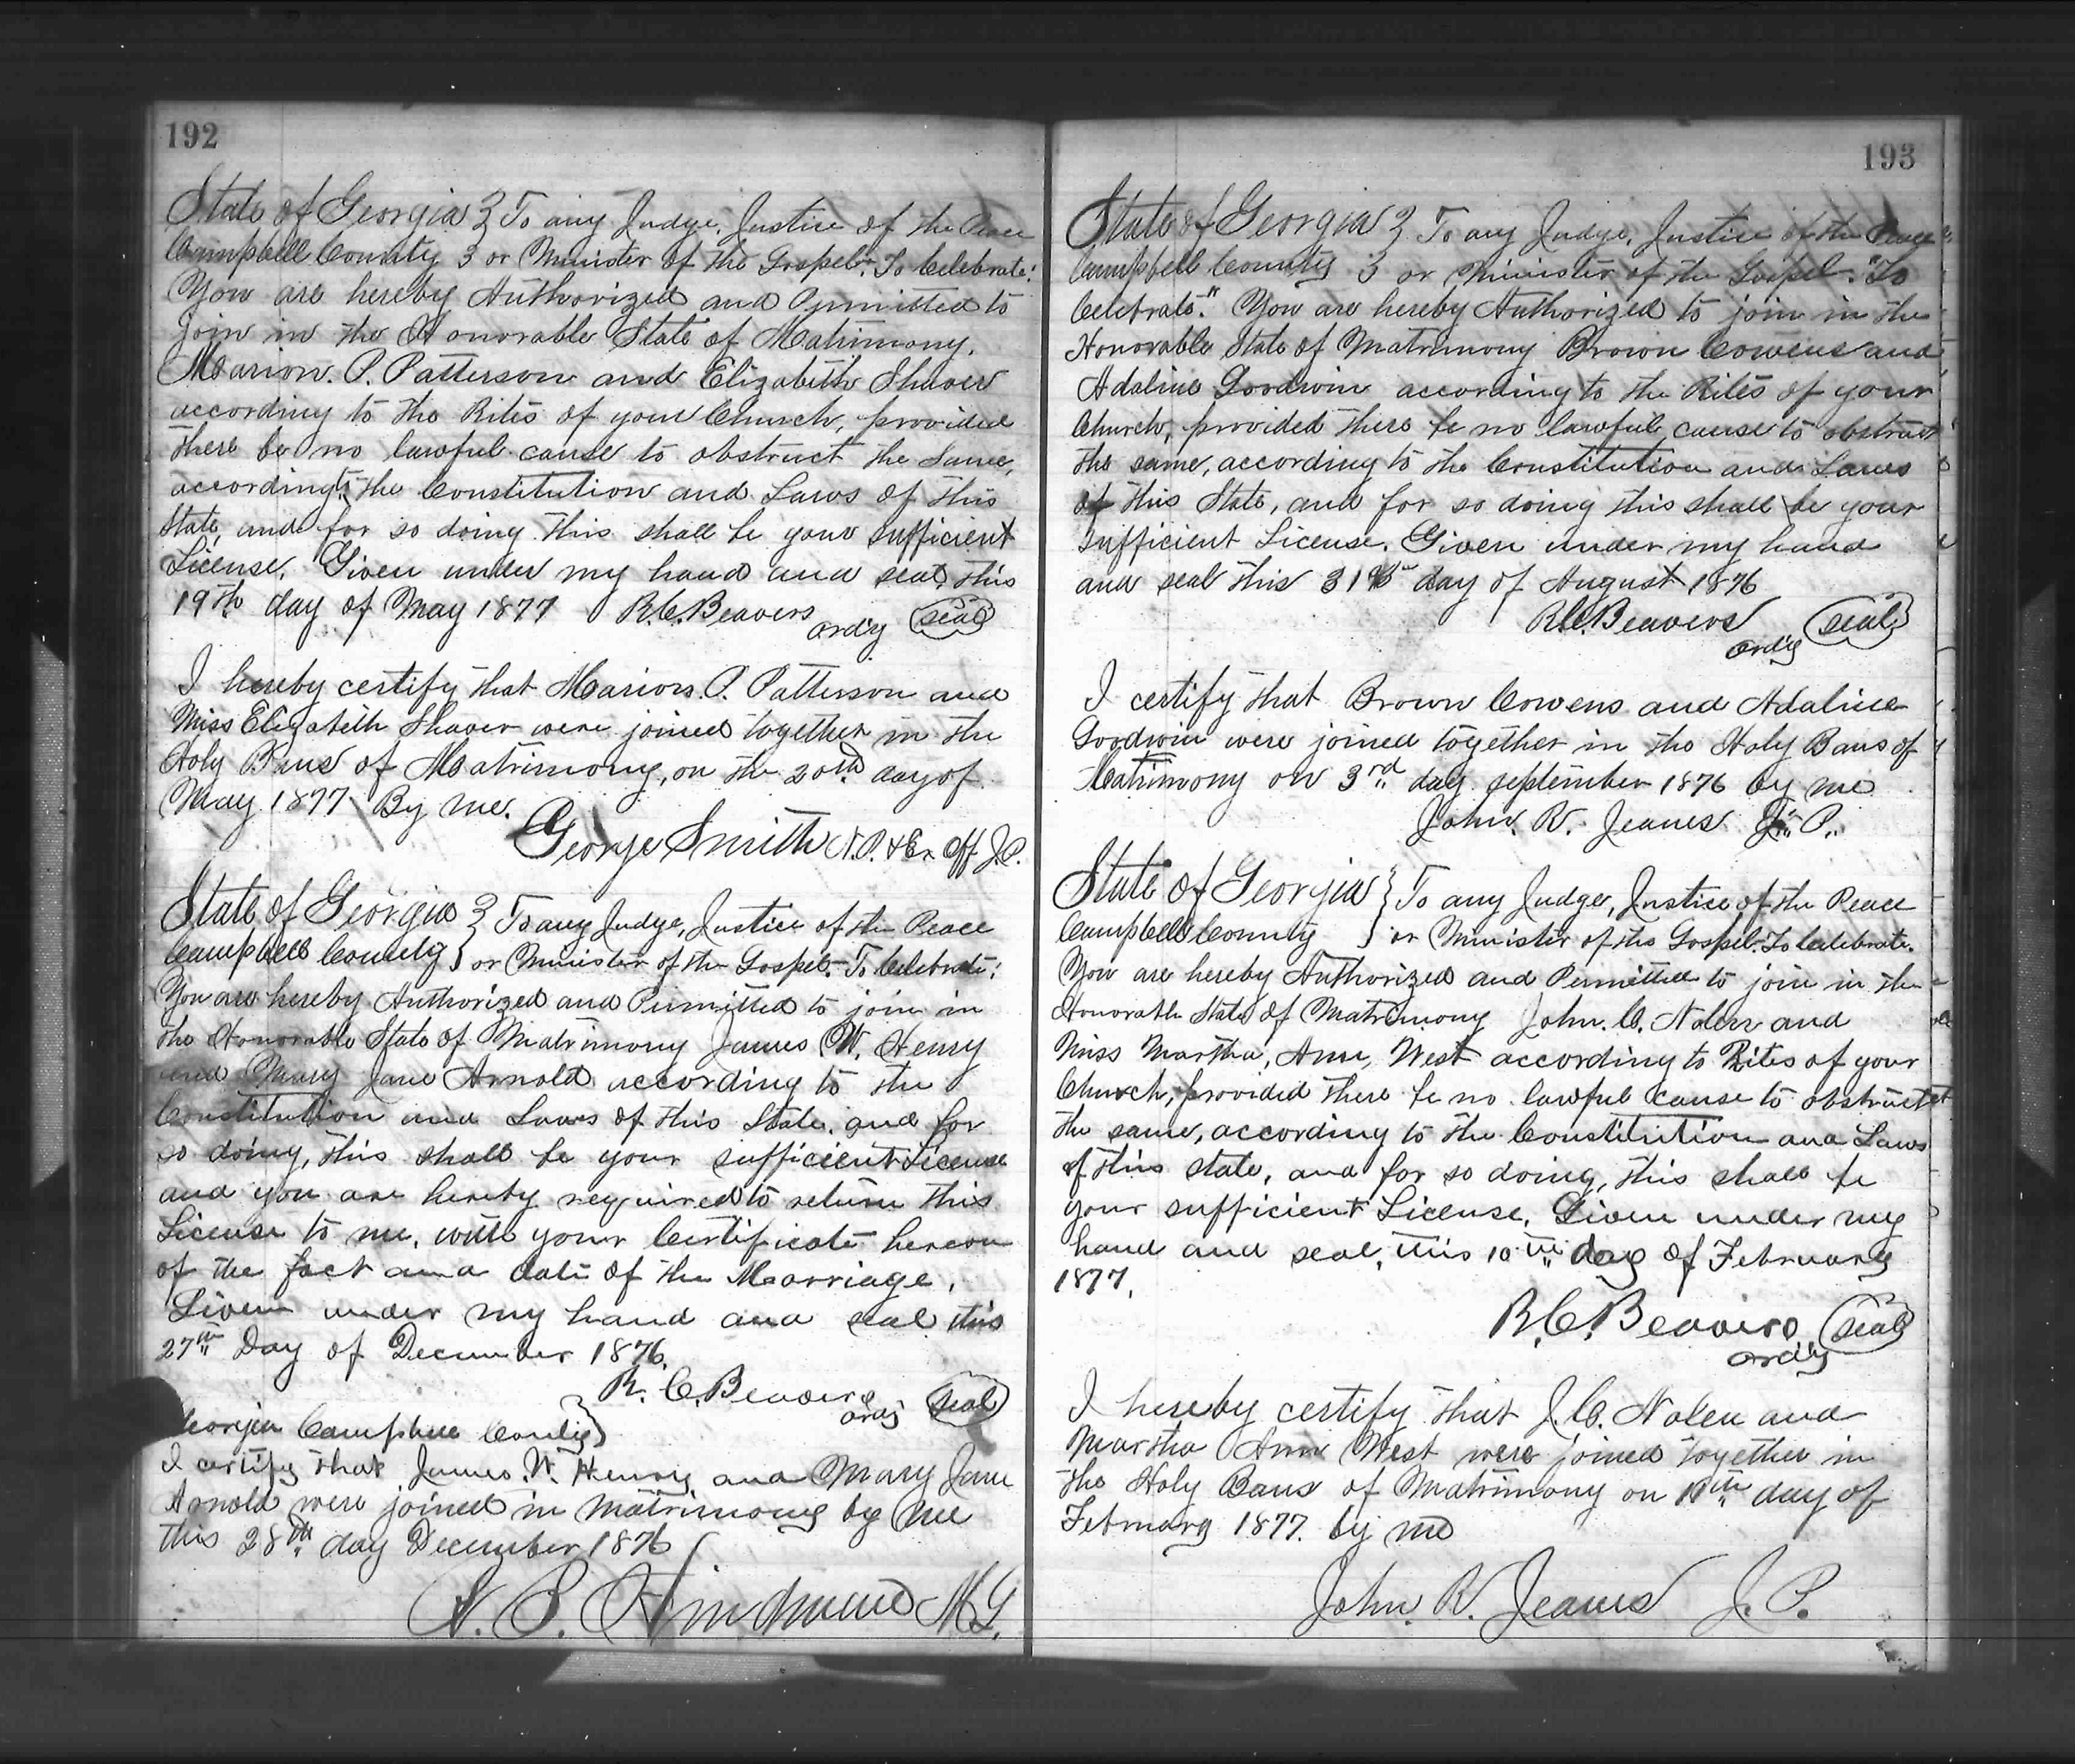 192
State of Georgia } To any Judge, Justice of the Peace
Campbell County } or Minister of the Gospel. "To Celebrate".
You are hereby Authorized and Permitted to
join in the Honorable State of Matrimony.
Marion. P. Patterson and Elizabeth Shaver
according to the Rites of your Church, provided
there be no lawful cause to obstruct the same,
according to the Constitution and Laws of this
State, and for so doing this shall be your sufficient
License. Given under my hand and seal this
19th day of May 1877 R.C. Beavers
Ord'y (seal)
I hereby certify that Marion. P. Patterson and
Miss Elizabeth Shaver were joined together in the
Holy Bans of Matrimony, on the 20th day of
May 1877 By me.
George Smith N.P. & Ex Off J.P.
State of Georgia } To any Judge, Justice of the Peace
Campbell County } or Minister of the Gospel. "To Celebrate".
You are hereby Authorized and Permitted to join in
the Honorable State of Matrimony James W. Henry
and Mary Jane Arnold according to the
Constitution and Laws of this State, and for
so doing, this shall be your sufficient License
and you are hereby required to return this
License to me, with your Certificate hereon
of the fact and date of the Marriage.
Given under my hand and seal this
27th Day of December 1876.
R. C. Beavers
Ord'y (seal)
Georgia Campbell County }
I certify that James. W. Henry and Mary Jane
Arnold were joined in matrimony by me
this 28th day December 1876
M.G.
193
State of Georgia } To any Judge, Justice of the Peace
Campbell County } or Minister of the Gospel. "To
Celebrate." You are hereby Authorized to join in the
Honorable State of Matrimony Brown Cowens and
Adaline Goodwin according to the Rites of your
Church, provided there be no lawful cause to obstruct
the same, according to the Constitution and Laws
of this State, and for so doing this shall be your
sufficient License. Given under my hand
and seal this 31st day of August 1876
R.C. Beavers
Ord'y (seal)
I certify that Brown Cowens and Adaline
Goodwin were joined together in the Holy Bans of
Matrimony on 3rd day september 1876 by me
John. R. Jeanes J. P.
State of Georgia } To any Judge, Justice of the Peace
Campbell County } or Minister of the Gospel. To Celebrate.
You are hereby Authorized and Permitted to join in the
Honorable State of Matrimony John. C. Nolen and
Miss Martha, Ann, West according to Rites of your
Church, provided there be no lawful cause to obstruct
the same, according to the Constitution and Laws
of this state, and for so doing, this shall be
your sufficient License. Given under my
hand and seal, this 10th day of February
1877.
R. C. Beavers (seal)
Ord'y
I hereby certify that J. C. Nolen and
Martha Ann West were joined together in
the Holy Bans of Matrimony on 11th day of
February 1877. by me
John. R. Jeanes J. P.